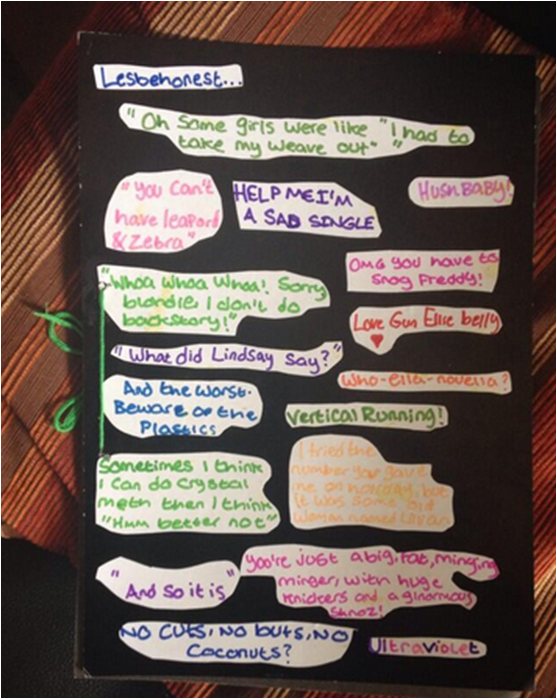 Lesbehonest...
"Oh Some girls were like "I had to
take my weave out" "
"You Can't
have leapard
& Zebra"
HELP ME I'M
A SAD SINGLE
HUSH BABY!
OMG you have to
Snog Freddy!
"Whoa Whoa Whoa! Sorry
blondie I don't do
backstory!"
Love Gun Ellie belly
"What did Lindsay Say?"
Who-ella-novella?
And the worst.
Beware of the
Plastics
Vertical Running!
Sometimes I think
I can do Crystal
meth then I think
"Hmm better not"
I tried the
number you gave
me on
it was some old
Woman named
"And so it is"
You're just a big, fat, minging
minger, with huge
knickers and a ginormous
Shnoz!
NO CUTS, NO buts, NO
Coconuts?
Ultraviolet